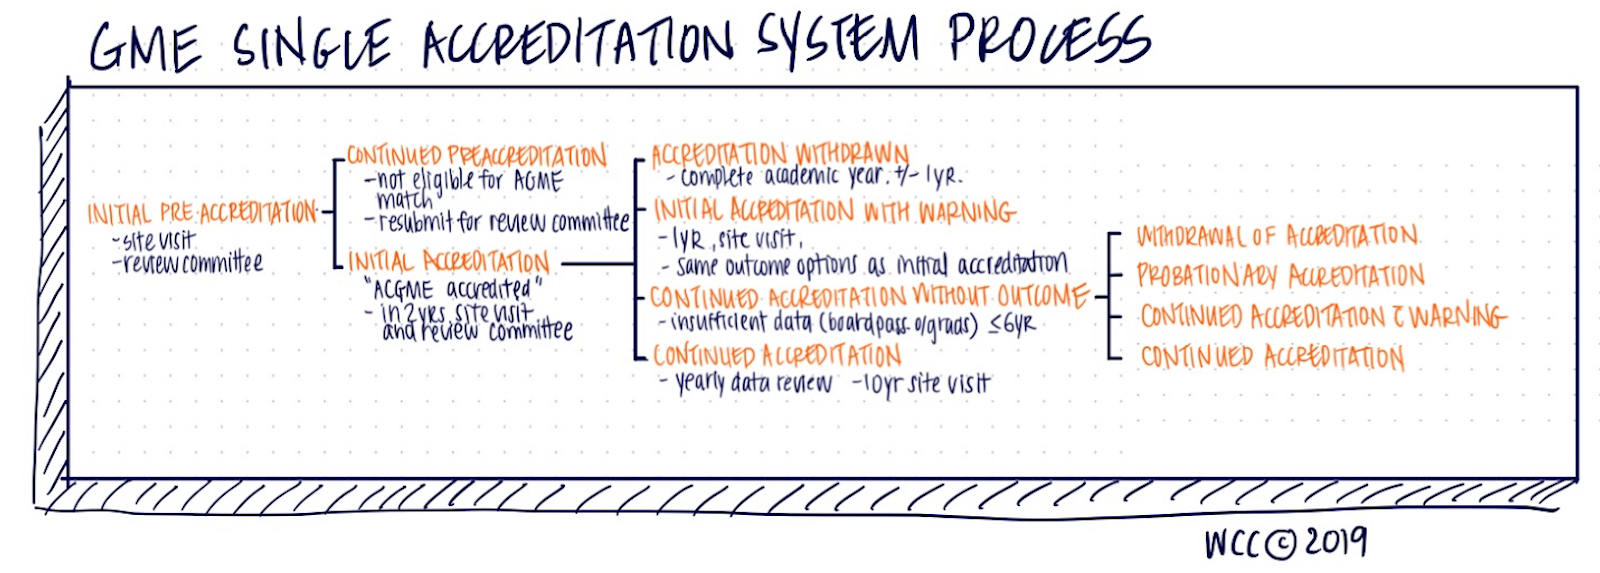 GME SINGLE ACCREDITATION SYSTEM PROCESS
INITIAL PRE-ACCREDITATION
- site visit
- review committee
CONTINUED PREACCREDITATION
- not eligible for AGME
match
- resubmit for review committee
INITIAL ACCREDITATION
"ACGME accredited"
- in 2 yrs site visit
and review committee
ACCREDITATION WITHDRAWN
- complete academic year. +/- 1yR.
INITIAL ACCREDITATION WITH WARNING
- 1yR, site visit,
- same outcome options as initial accreditation
CONTINUED ACCREDITATION WITHOUT OUTCOME
- insufficient data (boardpass o/grads) ≤6yR
CONTINUED ACCREDITATION
- yearly data review - 10yr site visit
WITHDRAWAL OF ACCREDITATION
PROBATIONARY ACCREDITATION
CONTINUED ACCREDITATION c̄ WARNING
CONTINUED ACCREDITATION
WCC © 2019